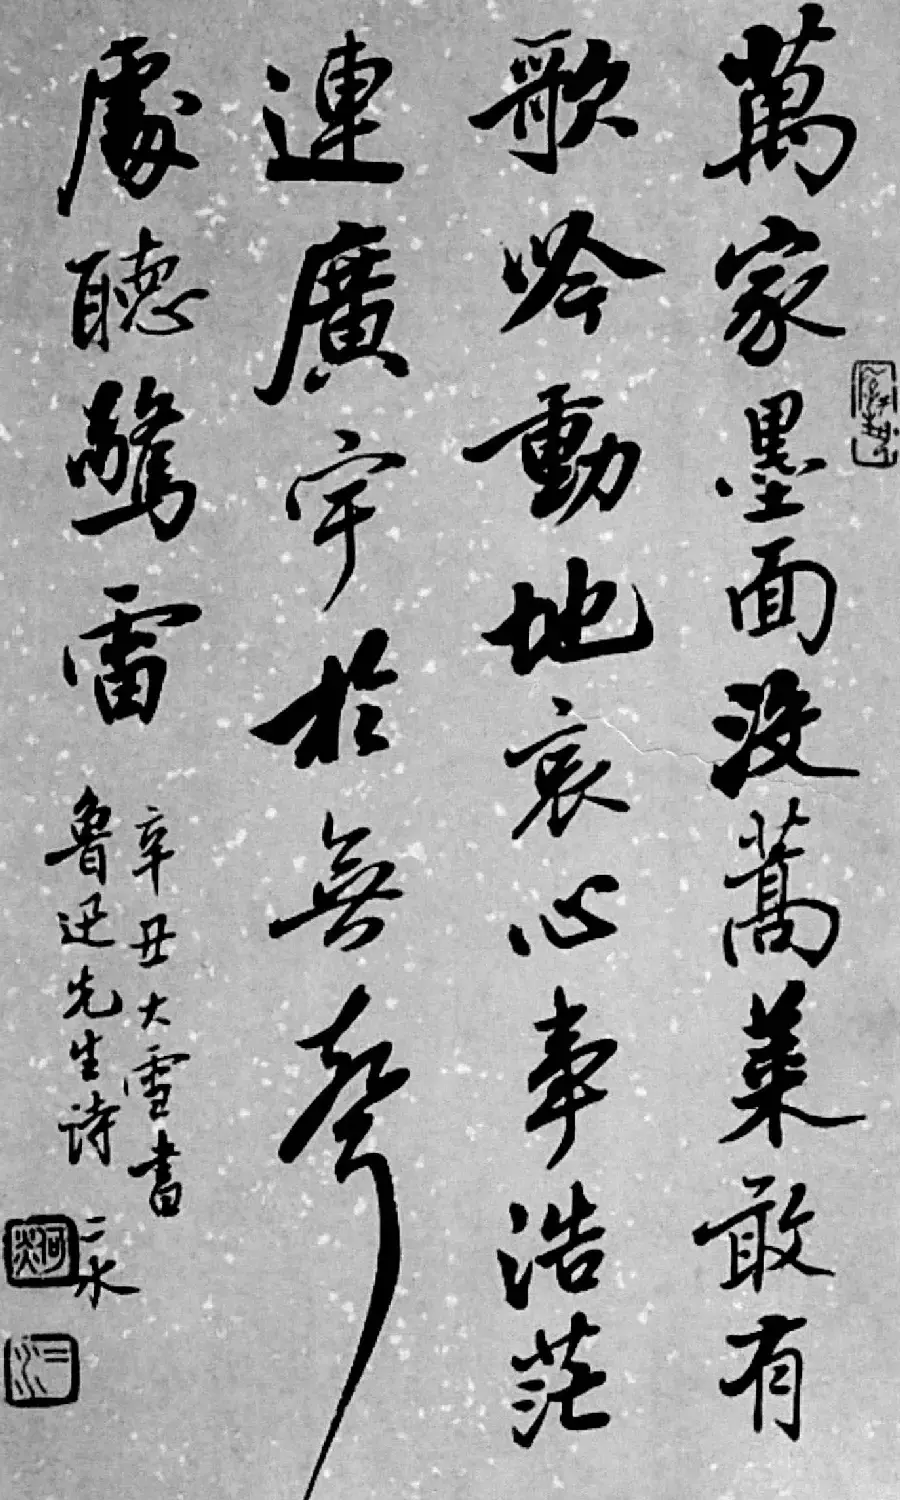 萬家墨面没蒿萊敢有
歌吟動地哀心事浩茫
連廣宇於無聲
處聽驚雷
辛丑大雪書
魯迅先生詩
二水